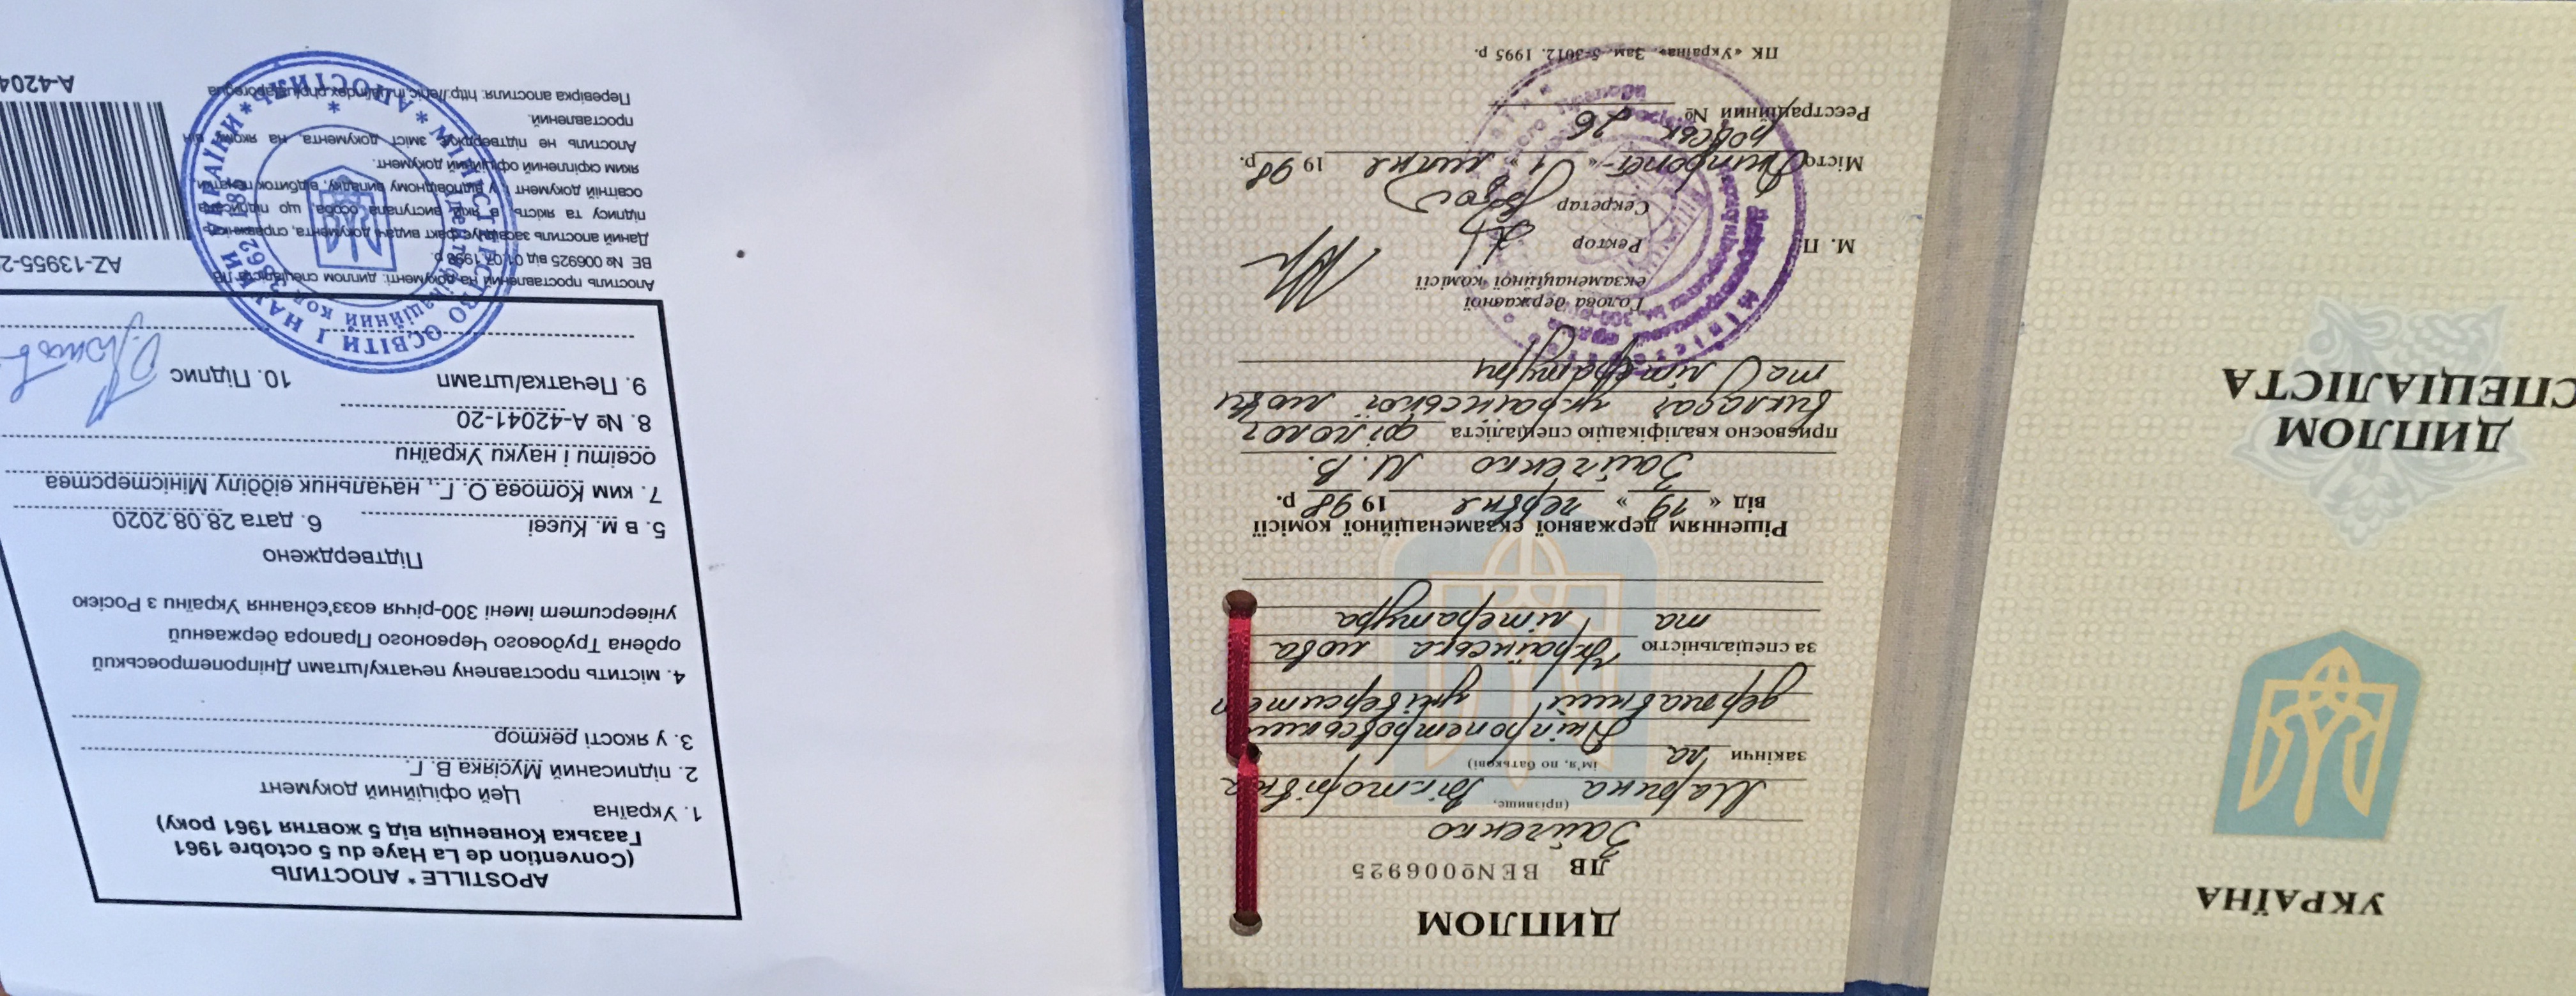 УКРАЇНА
ДИПЛОМ
СПЕЦІАЛІСТА
ДИПЛОМ
ЛВ ВЕ№006925
Зайченко
(прізвище,
Марина Вікторівна
ім'я, по батькові)
закінчи ла
Дніпропетровський
державний університет
за спеціальністю Українська мова
та література
Рішенням державної екзаменаційної комісії
від « 19 » червня 1998 р.
Зайченко М. В.
присвоєно кваліфікацію спеціаліста філолог
викладач української мови
та літератури
Голова державної
екзаменаційної комісії
М. П. Ректор
Секретар
Місто Дніпропет- « 1 » липня 1998 р.
ровськ
Реєстраційний № 26
ПК «Україна». Зам. 5-3012. 1995 р.
APOSTILLE * АПОСТИЛЬ
(Convention de La Haye du 5 octobre 1961
Гаазька Конвенція від 5 жовтня 1961 року)
1. Україна
Цей офіційний документ
2. підписаний Мусіяка В. Г.
3. у якості ректор
4. містить проставлену печатку/штамп Дніпропетровський
ордена Трудового Червоного Прапора державний
університет імені 300-річчя возз'єднання України з Росією
Підтверджено
5. в м. Києві 6. дата 28.08.2020
7. ким Котова О. Г., начальник відділу Міністерства
освіти і науки України
8. № А-42041-20
9. Печатка/штамп 10. Підпис
Апостиль проставлений на документі: диплом спеціаліста ЛВ
ВЕ № 006925 від 01.07.1998 р.
Даний апостиль засвідчує факт видачі документа, справжність
підпису та якість, в якій виступала особа, що підписала
освітній документ і, у відповідному випадку, відбиток печатки,
яким скріплений офіційний документ.
Апостиль не підтверджує зміст документа, на якому він
проставлений.
Перевірка апостиля: http://enic.in.ua/index.php/ua/
AZ-13955-2
А-4204
МІНІСТЕРСТВО ОСВІТИ І НАУКИ УКРАЇНИ * АПОСТИЛЬ *